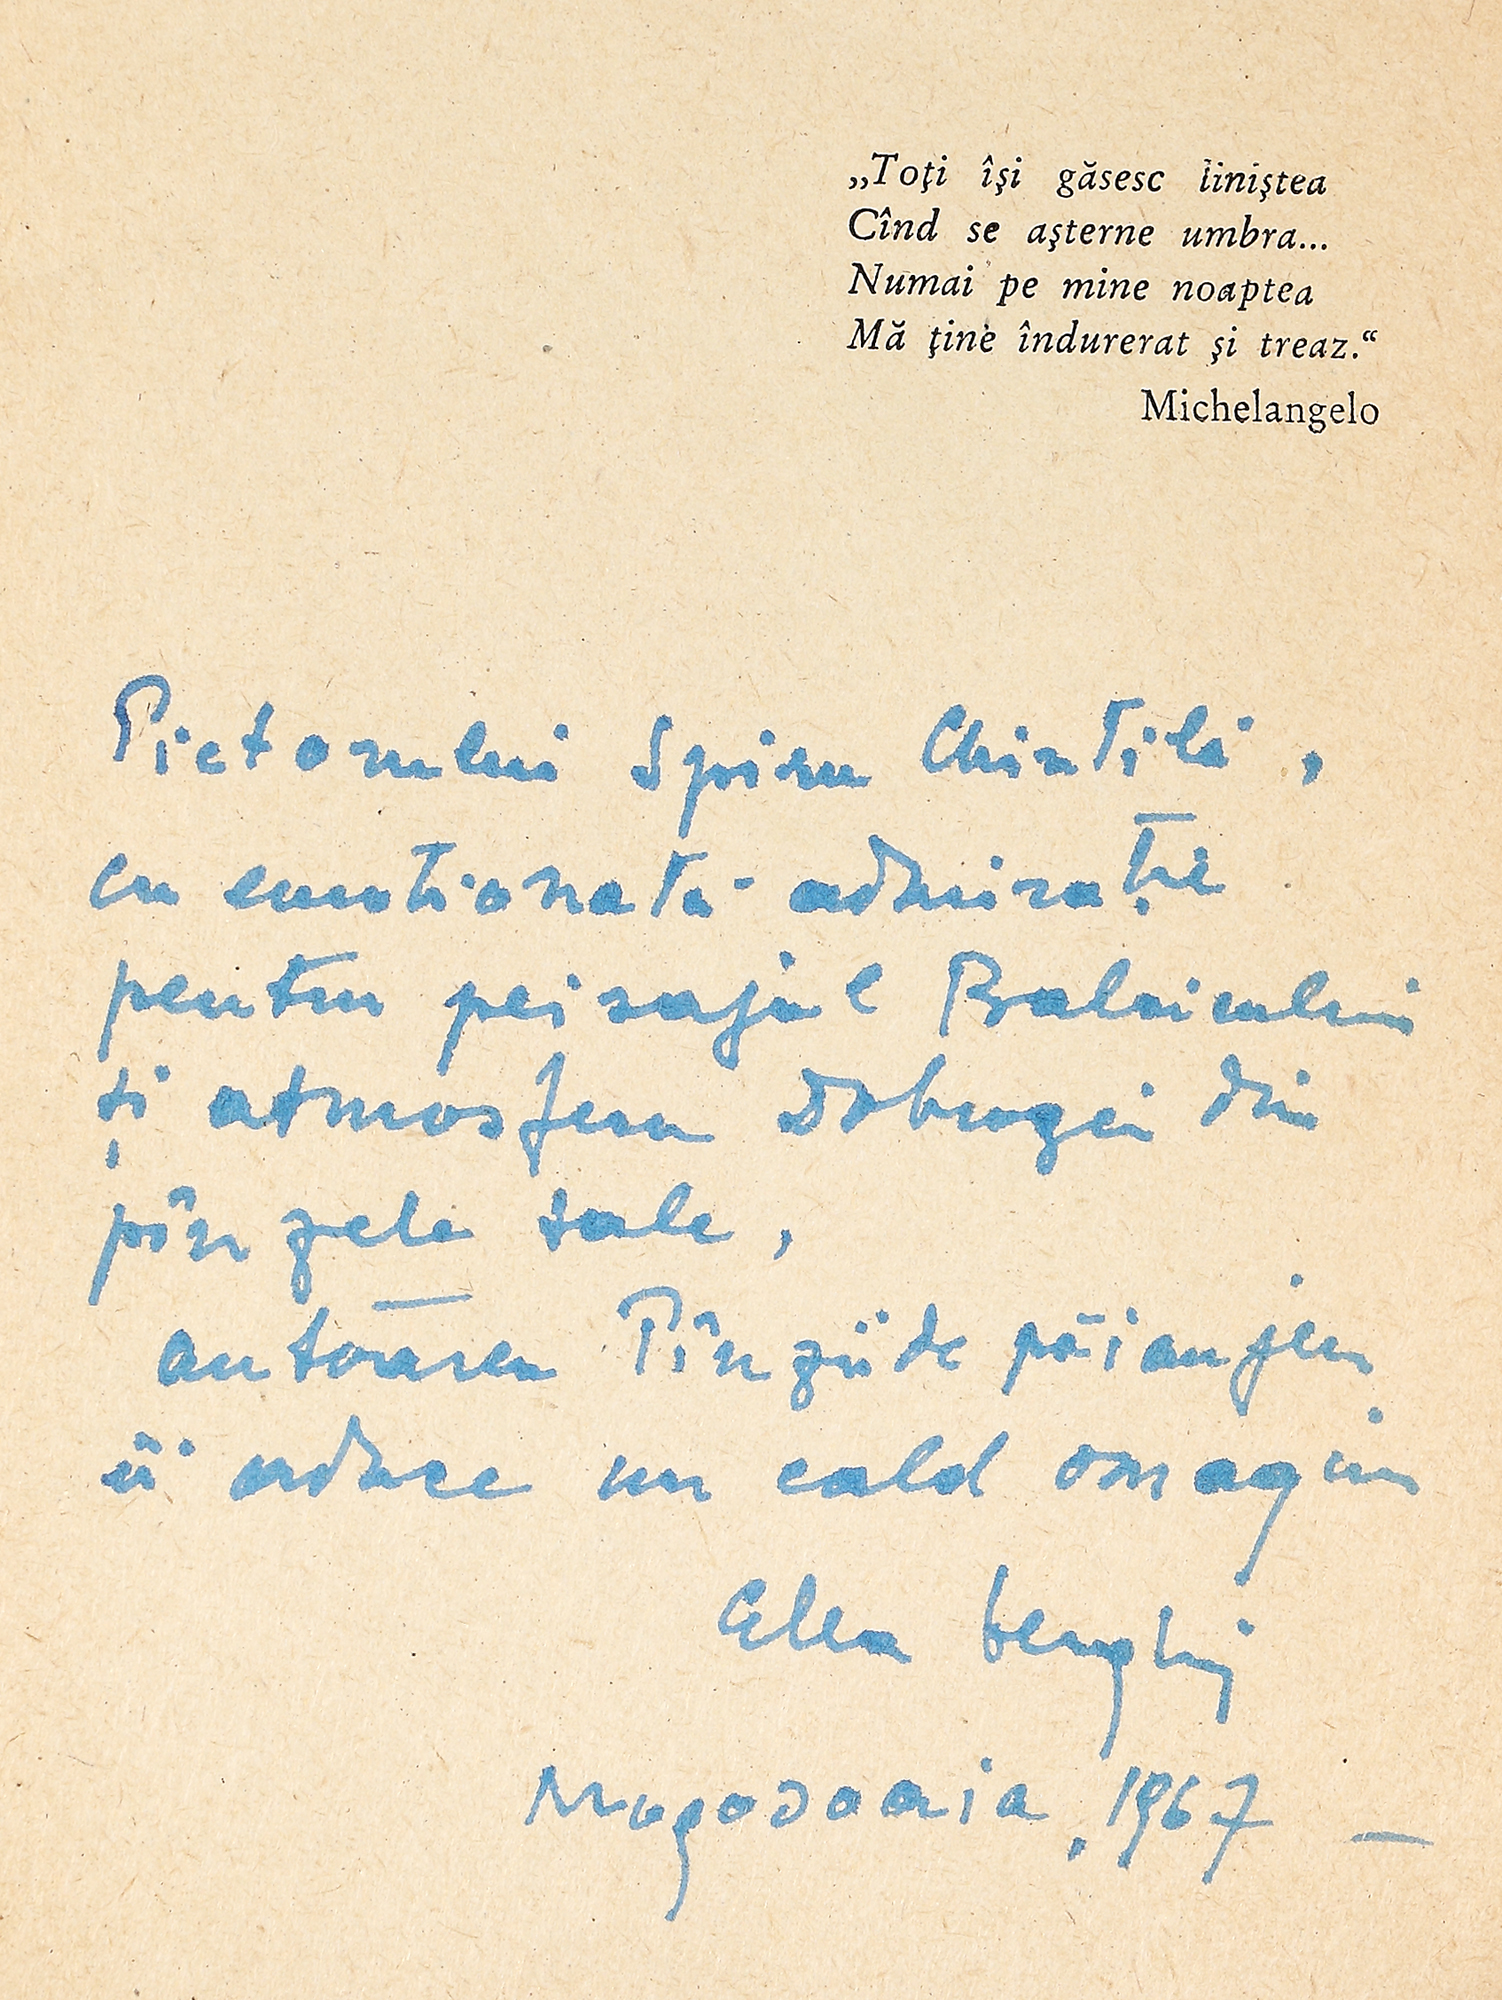 „Toţi îşi găsesc liniştea
Cînd se aşterne umbra...
Numai pe mine noaptea
Mă ţine îndurerat şi treaz.“
Michelangelo
Pictorului Spiru Chintilă,
cu emoționată admirație
pentru peisajul Balcicului
și atmosfera Dobrogei din
pînzele sale,
autoarea Pînzii de păianjen
îi aduce un cald omagiu
Cella Serghi
Mogoșoaia, 1967 —